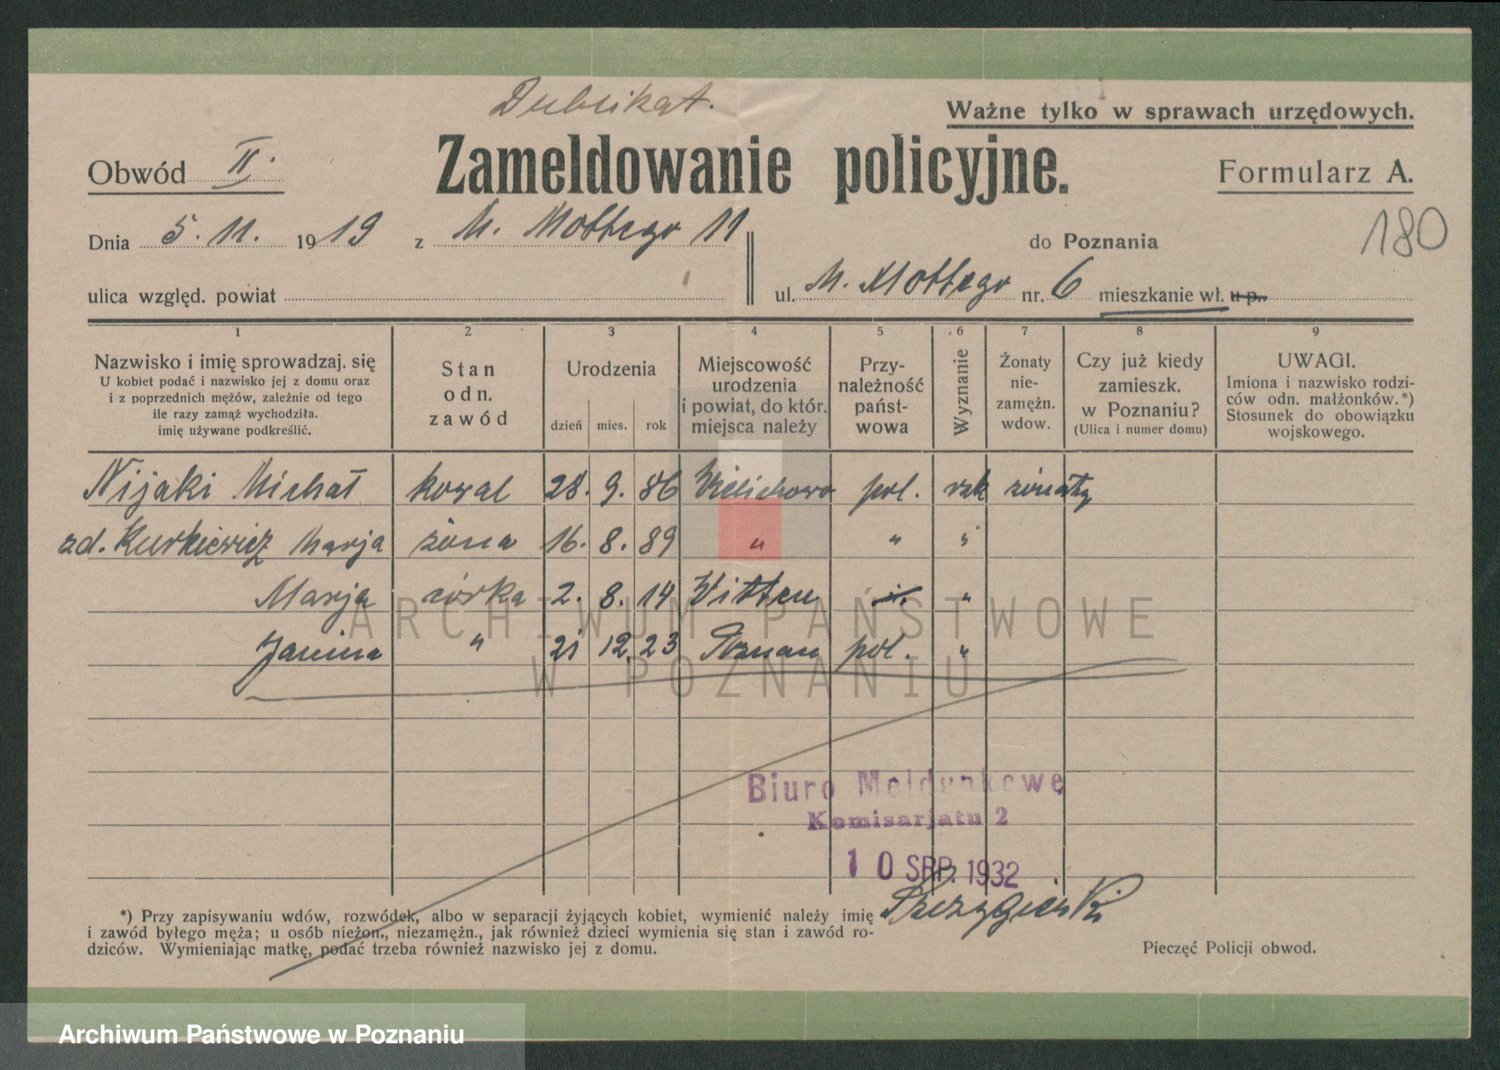 Dublikat.
Ważne tylko w sprawach urzędowych.
Obwód II.
Zameldowanie policyjne.
Formularz A.
180
Dnia 5. 11. 1919 z M. Mottego 11 do Poznania
ulica względ. powiat ul. M. Mottego nr. 6 mieszkanie wł. u p.
1 2 3 4 5 6 7 8 9
Nazwisko i imię sprowadzaj. się
U kobiet podać i nazwisko jej z domu oraz
i z poprzednich mężów, zależnie od tego
ile razy zamąż wychodziła.
imię używane podkreślić.
Stan
odn.
zawód
Urodzenia
dzień mies. rok
Miejscowość
urodzenia
i powiat, do któr.
miejsca należy
Przy-
należność
państ-
wowa
Wyznanie
Żonaty
nie-
zamężn.
wdow.
Czy już kiedy
zamieszk.
w Poznaniu?
(Ulica i numer domu)
UWAGI.
Imiona i nazwisko rodzi-
ców odn. małżonków.*)
Stosunek do obowiązku
wojskowego.
Nijaki Michał kowal 28. 9. 86 Wielichowo pol. rzk żonaty
zd. Kurkiewicz Marja żona 16. 8. 89 " " "
Marja córka 2. 8. 14 Witten "
Janina " 21 12. 23 Poznan pol. "
ARCHIWUM PAŃSTWOWE
W POZNANIU
Biuro Meldunkowe
Komisarjatu 2
10 SRP. 1932
*) Przy zapisywaniu wdów, rozwódek, albo w separacji żyjących kobiet, wymienić należy imię
i zawód byłego męża; u osób nieżon., niezamężn., jak również dzieci wymienia się stan i zawód ro-
dziców. Wymieniając matkę, podać trzeba również nazwisko jej z domu.
Pieczęć Policji obwod.
Archiwum Państwowe w Poznaniu